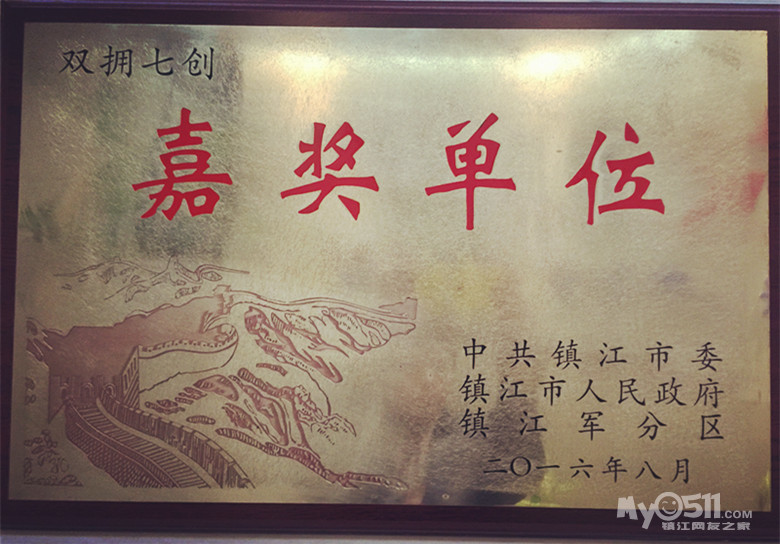 双拥七创
嘉奖单位
中共镇江市委
镇江市人民政府
镇江军分区
二〇一六年八月
My0511.com
镇江网友之家